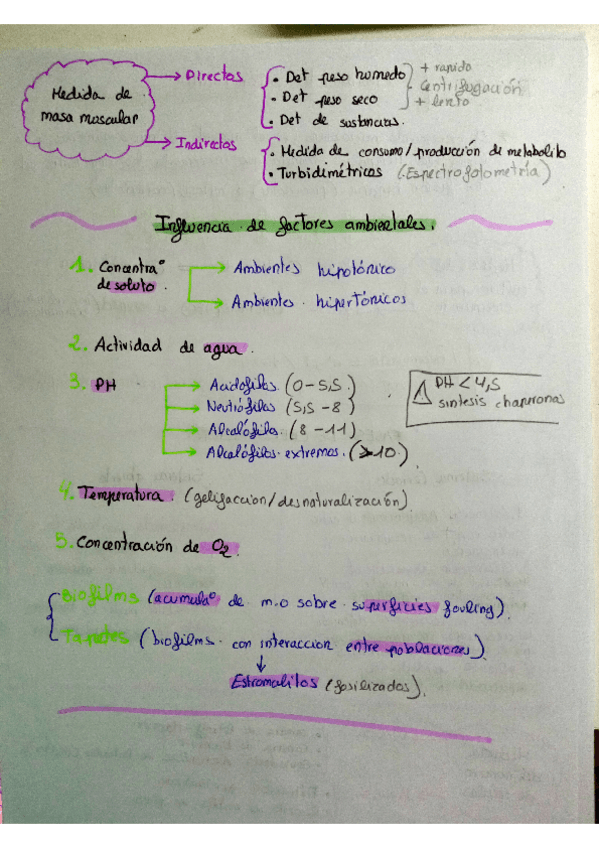 Medida de
masa muscular
→ Directas
• Det peso humedo
• Det peso seco
• Det de sustancias.
+ rapido
centrifugación
+ lento
→ Indirectas
• Medida de consumo/producción de metabolito
• Turbidimétricos (Espectrofotometría)
Influencia de factores ambientales.
1. Concentraº
de soluto.
Ambientes hipotónico
Ambientes hipertónicos
2. Actividad de agua.
3. PH
Acidófilas (0-5,5)
Neutrófilas (5,5-8)
Alcalófilas (8-11)
Alcalófilas extremos. (>10)
Δ PH < 4,5
sintesis chaperonas
4. Temperatura. (geligacion/desnaturalización)
5. Concentración de O2
Biofilms (acumulaº de m.o sobre superficies fouling).
Tapetes (biofilms con interaccion entre poblaciones).
↓
Estromalitos (fosilizados).